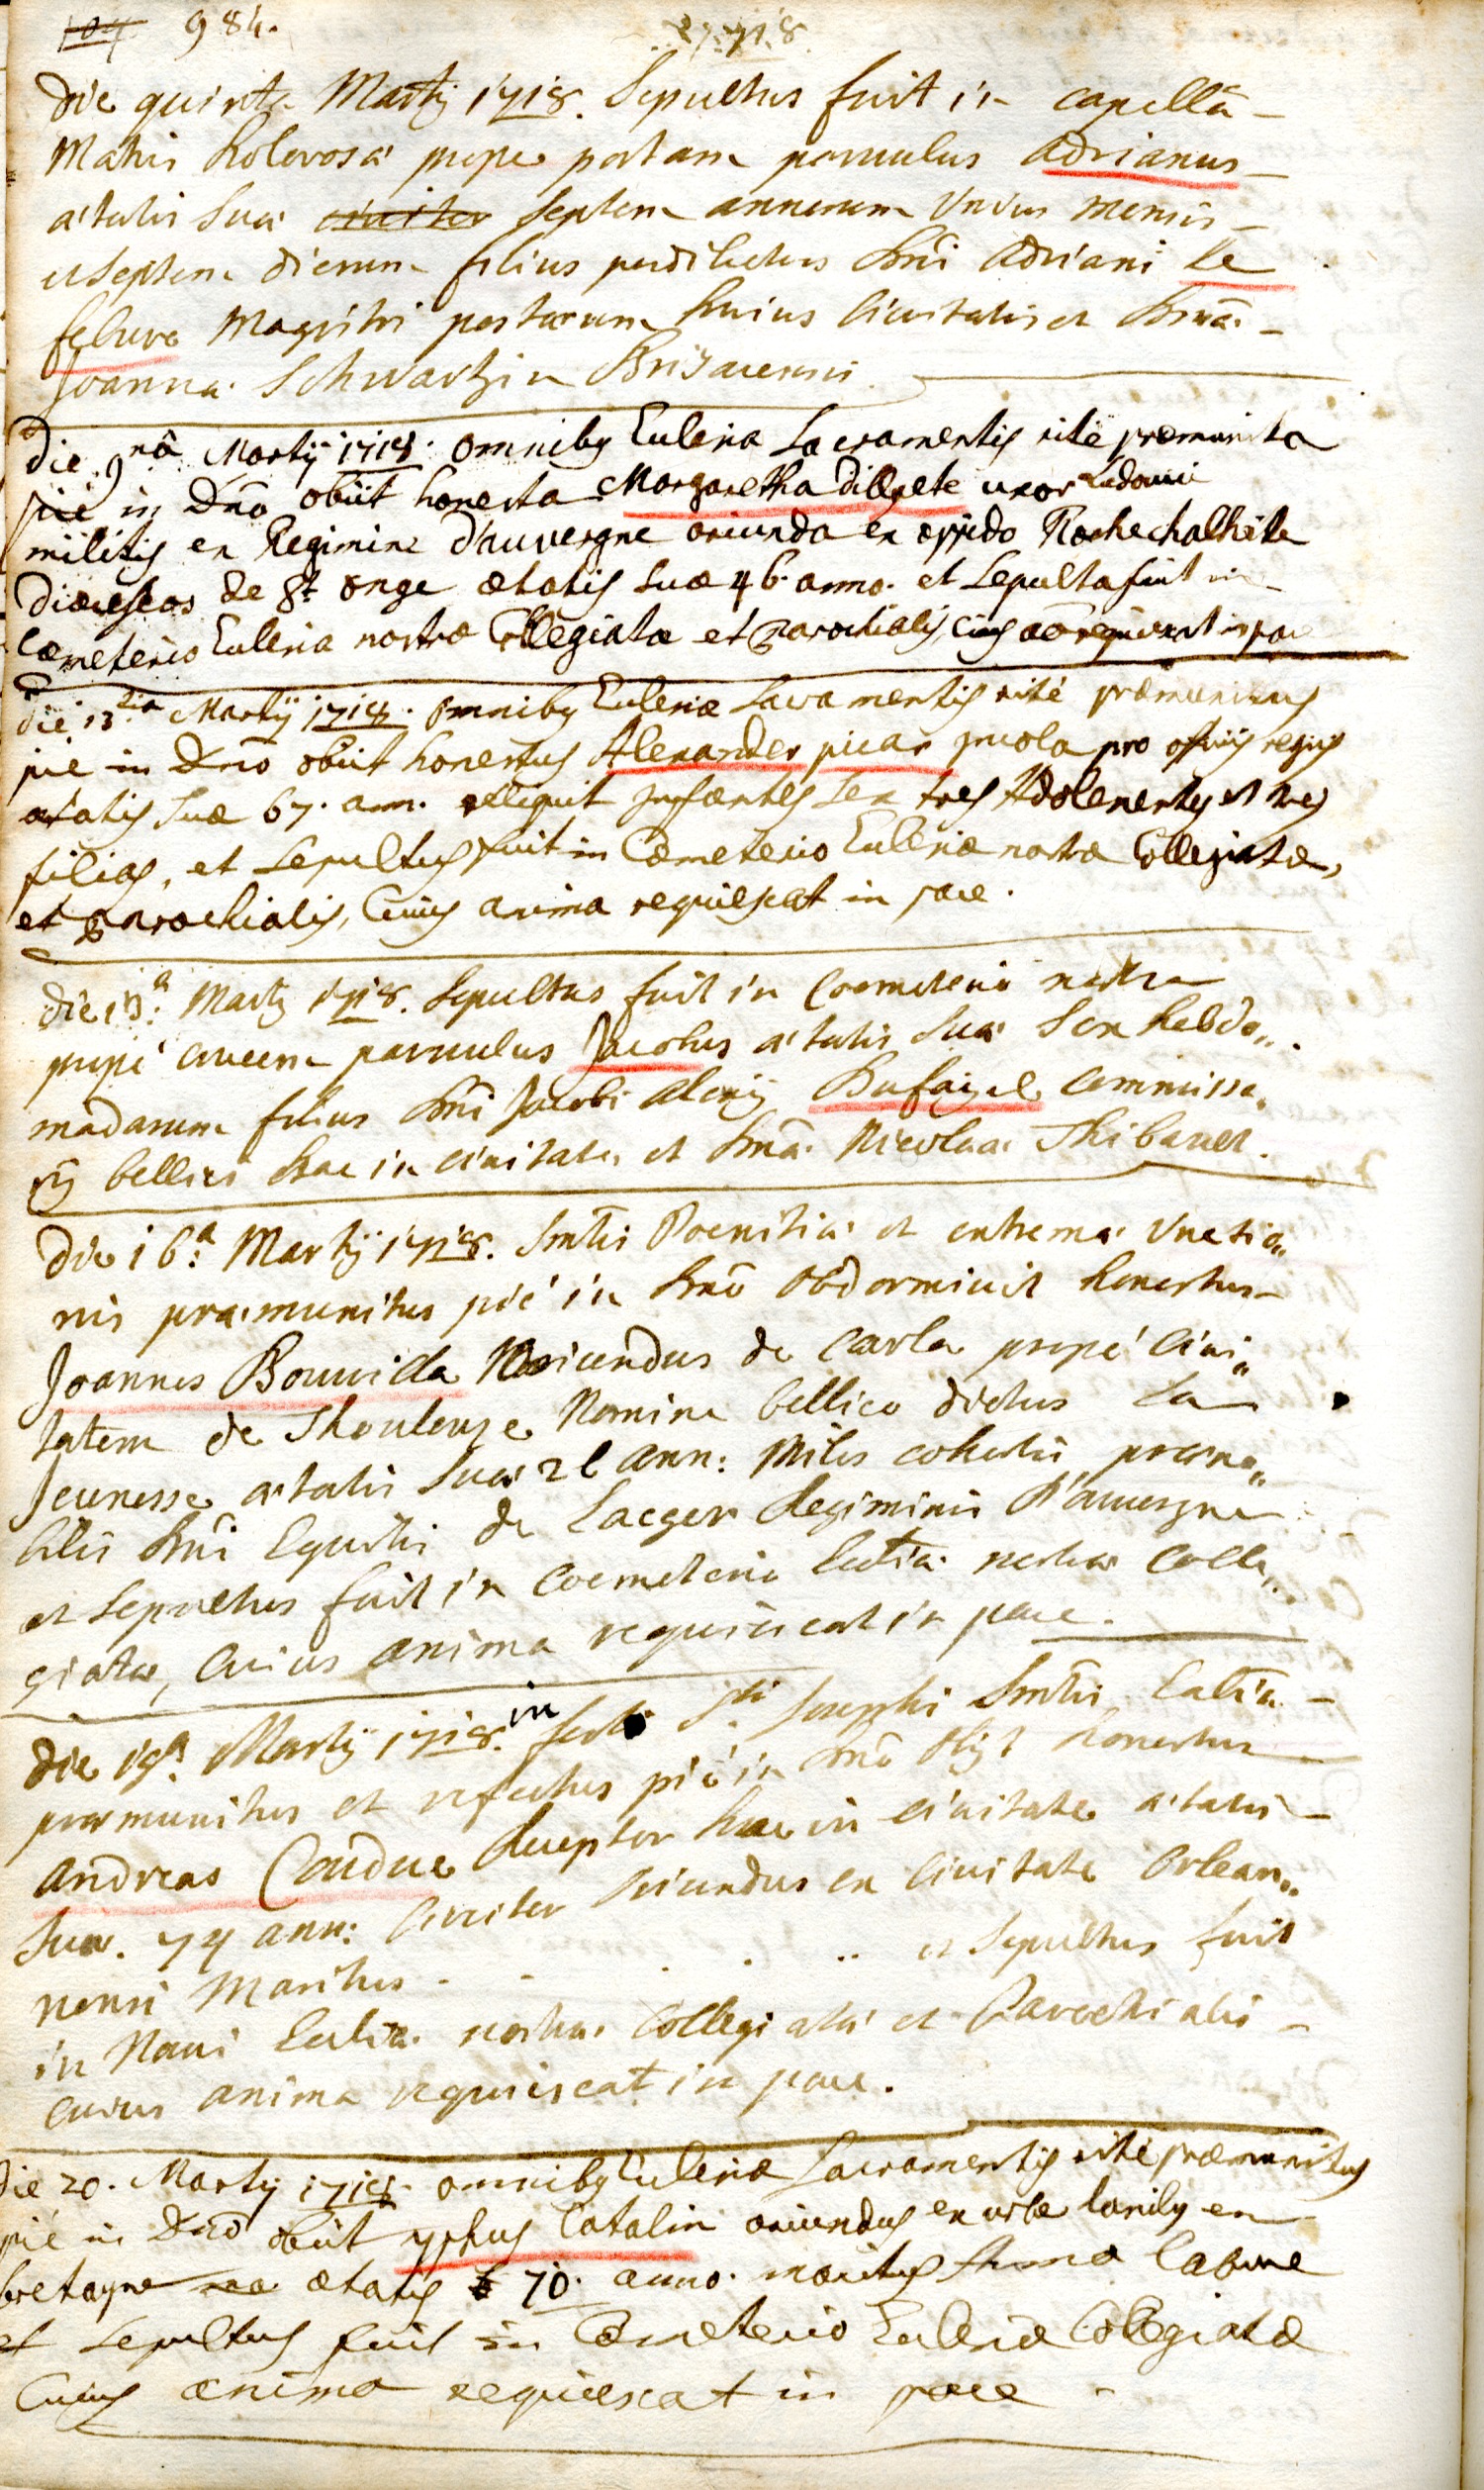 104 984.
1718
Die quinta Martij 1718. Sepultus fuit in capellâ
Matris dolorosæ prope portam parvulus Adrianus
ætatis suæ circiter septem annorum unius mensis
et septem dierum filius perdilectus Dni Adriani Le
febure Magistri postarum huius civitatis et Dnæ
Joannæ Schwartzin Brisacensis
Die 9nâ Martij 1718. omnibq Eccleriæ Sacramentis ritè præmunita
piè in Dno obiit honesta Margaretha dillhete uxor Ludovici
militis ex Regimine d'auvergne oriunda ex oppido Rochechalhite
Diæceseos de St. onge ætatis suæ 46. anno. et sepulta fuit in
Cæmeterio Eccleriæ nostræ Collegiatæ et parochialis, cuius aâ requiescat in pace
Die 13tia Martij 1718. omnibq Eccleriæ Sacramentis rité præmunitus
pie in Dno obiit honestus Alexander picar incola pro officiis regijs
ætatis suæ 67. ann. reliquit infantes sex tres Adolescentes et tres
filias, et sepultus fuit in Cæmeterio Eccleriæ nostræ Collegiatæ,
et parochialis, Cuius anima requiescat in pace.
Die 13a: Martij 1718. Sepultus fuit in Coemeterio nostro
propè crucem parvulus Jacobus ætatis suæ sex hebdo„
madarum filius Dni Jacobi Alexij Dufaiget Commissa„
rij bellici hac in civitate et Dnæ Nicolaæ Thibault.
Die 16a: Martij 1718. Smtis Poenitiæ et extremæ Unctio„
nis præmunitus piè in Dno obdormivit honestus
Joannes Bouvilla Oriundus de Carla propè Civi„
tatem de Thoulouze Nomine bellico dictus La
Jeunesse ætatis suæ 28 ann: Miles cohortis præno„
bilis Dni Equitis de Laeger Regiminis d'auvergne
et sepultus fuit in Coemeterio Eccliæ nostræ Colle„
giatæ, Cuius anima requiescat in pace.
Die 19a. Martij 1718. in festo Sti Josephi Smtis Eccliæ
præmunitus et refectus piè in Dno obijt honestus
Andreas Coudue Receptor hac in civitate ætatis
suæ. 74 ann: Circiter oriundus ex Civitate Orlean„
nensi Maritus . . . . .. et sepultus fuit
in Navi Eccliæ nostræ Collegiatæ et Parochialis
cuius anima requiescat in pace.
Die 20. Martij 1718. omnibq Eccleriæ Sacramentis rité præmunitus
pié in Dno obiit yphus Catalin oriundus ex urbe lanily en
bretagne ætatis 70. anno. maritus Annæ Cabine
et sepultus fuit in Cæmeterio Eccleriæ Collegiatæ
Cuius anima requiescat in pace